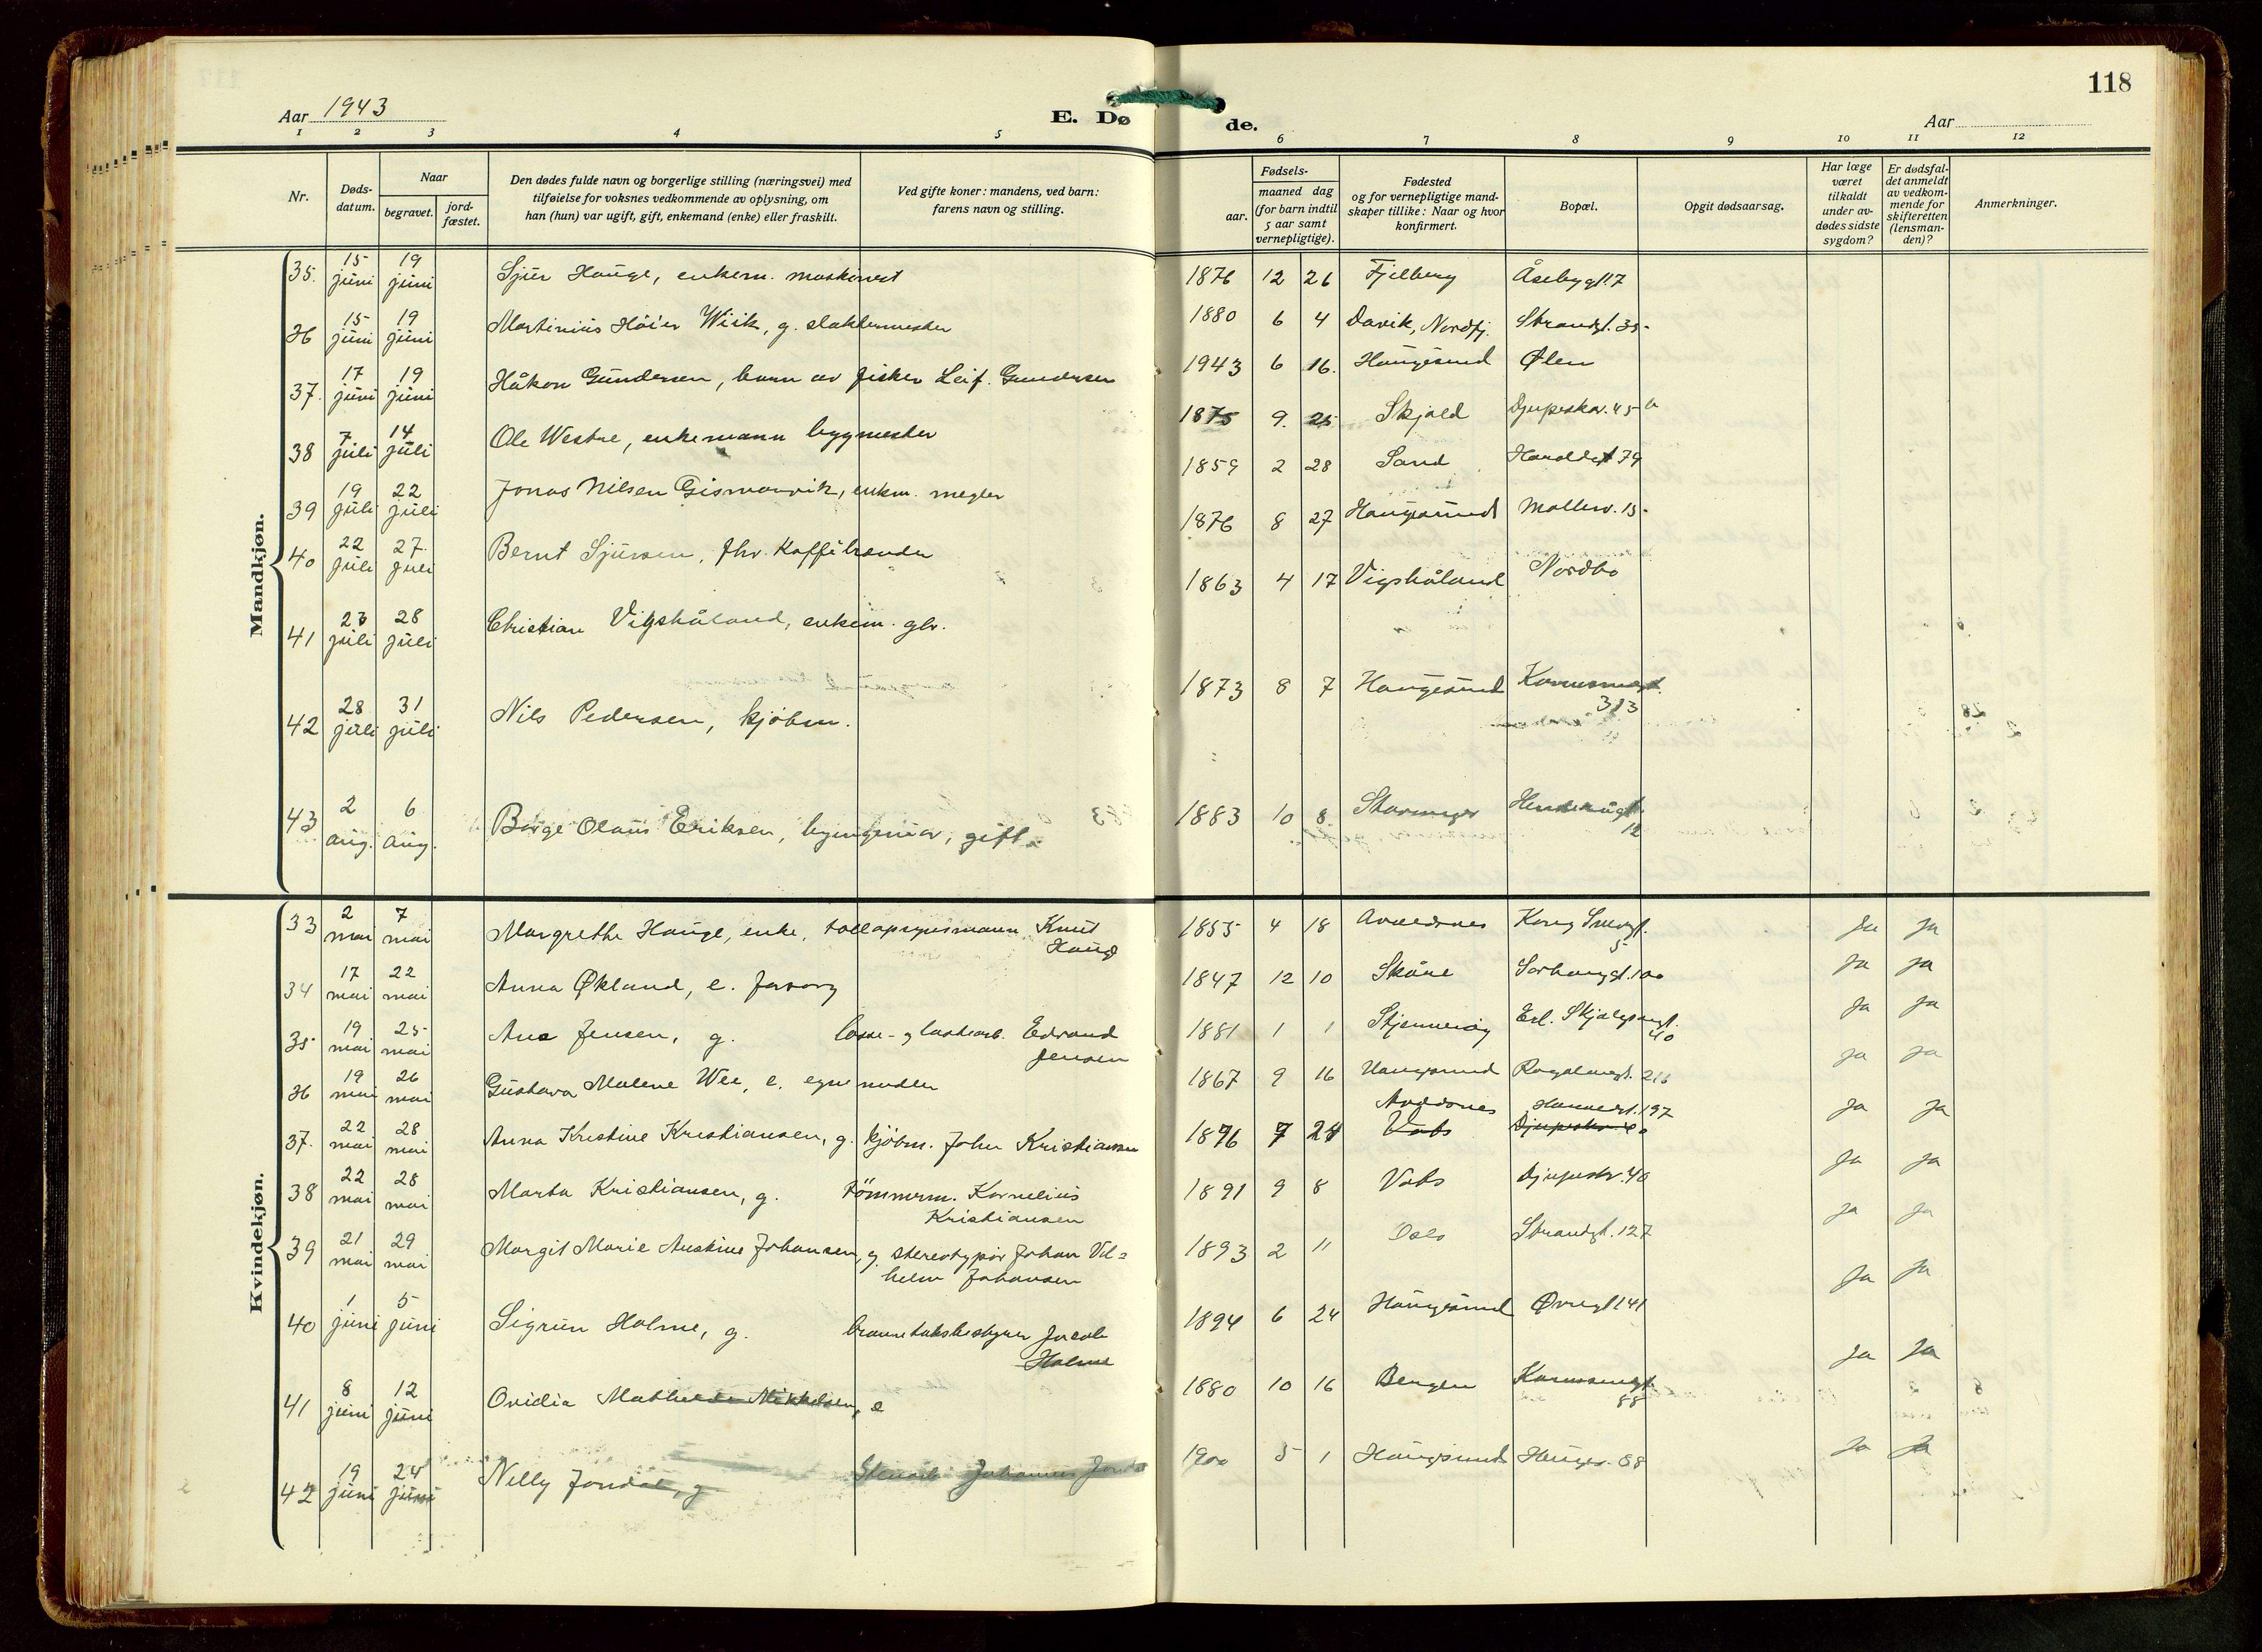 118
Aar 1943
E. Dø de.
Aar
1 2 3 4 5 6 7 8 9 10 11 12
Nr.
Døds-datum.
Naar
begravet.
jord-fæstet.
Den dødes fulde navn og borgerlige stilling (næringsvei) med
tilføielse for voksnes vedkommende av oplysning, om
han (hun) var ugift, gift, enkemand (enke) eller fraskilt.
Ved gifte koner: mandens, ved barn:
farens navn og stilling.
Fødsels-
aar.
maaned dag
(for barn indtil
5 aar samt
vernepligtige).
Fødested
og for vernepligtige mand-
skaper tillike: Naar og hvor
konfirmert.
Bopæl.
Opgit dødsaarsag.
Har læge
været
tilkaldt
under av-
dødes sidste
sygdom?
Er dødsfal-
det anmeldt
av vedkom-
mende for
skifteretten
(lensman-
den)?
Anmerkninger.
Mandkjøn.
35. 15 juni 19 juni Sjur Hauge, enkem. maskinist 1876 12 26 Fjelberg Åsebygt 17
36 15 juni 19 juni Martinius Höier Wiik, g. slaktermester 1880 6 4 Davik, Nordfj. Strandgt. 35
37. 17 juni 19 juni Håkon Gundersen, barn av fisker Leif Gundersen 1943 6 16. Haugesund Ølen
38 7 juli 14 juli Ole Westre, enkemann bygmester 1875 9. 25 Skjold Djupeskar. 45 a
39 19 juli 22 juli Jonas Nilsen Gismarvik, enkm. megler 1859 2 28 Sand Haraldsgt 79
40 22 juli 27. juli Bernt Sjursen, fhv. Kaffibrender 1876 8 27 Haugesund Møllerv. 15
41 23 juli 28 juli Christian Vigshåland, enkem. gbr. 1863 4 17 Vigshåland Nordbo
42 28 juli 31 juli Nils Pedersen, kjöbm. 1873 8 7 Haugesund Karmsundgt.
313
43 2 aug. 6 aug. Börge Olaus Eriksen, byingeniør, gift 1883 10 8. Stavanger
12
Kvindekjøn.
33 2 mai 7 mai Margrethe Hauge, enke, tollopsynsmann Knut
Hauge 1855 4 18 Avaldsnes Kong Sverregt.
5 Ja Ja
34 17 mai 22 mai Anna Økland, e. 1847 12 10 Skåne Sörhauggt. 100 Ja Ja
35 19 mai 25 mai Ana Jensen, g. losse- og lastearb. Edvard
Jensen 1881 1 1 Stjernerøy Erl. Skjalgsongt.
40 Ja Ja
36 19 mai 26 mai Gustava Malene Wee, e. egne midler 1867 9 16 Haugesund 216 Ja Ja
37. 22 mai 28 mai Anna Kristine Kristiansen, g. kjöbm. John Kristiansen 1876 7 24 Avaldsnes Vats 197 Djupeskar. 40 Ja Ja
38 22 mai 28 mai Marta Kristiansen, g. tömmerm. Kornelius
Kristiansen 1891 9 8 Vats Djupeskr. 40 Ja Ja
39 21 mai 29 mai Margit Marie Johansen, g. stereotypør Johan Vil=
helm Johansen 1893 2 11 Oslo Strandgt. 127 Ja Ja
40 1 juni 5 juni Sigrun Holme, g. Jacob
Holme 1894 6 24 Haugesund Øvregt 141 Ja Ja
41 8 juni 12 juni Ovidia Mathilde Mikkelsen, e 1880 10 16 Bergen Karmsundgt.
88 Ja Ja
42 19 juni 24 juni Nilly Jondal, g Johannes 1900 5 1 Haugesund 88 Ja Ja